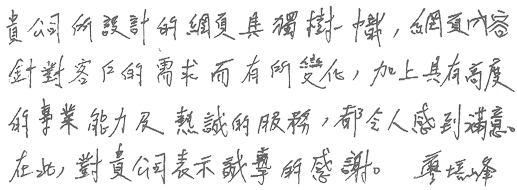 貴公司所設計的網頁具獨樹一幟，網頁內容
針對客戶的需求而有所變化，加上具有高度
的專業能力及熱誠的服務，都令人感到滿意。
在此，對貴公司表示誠摯的感謝。 廖培峰